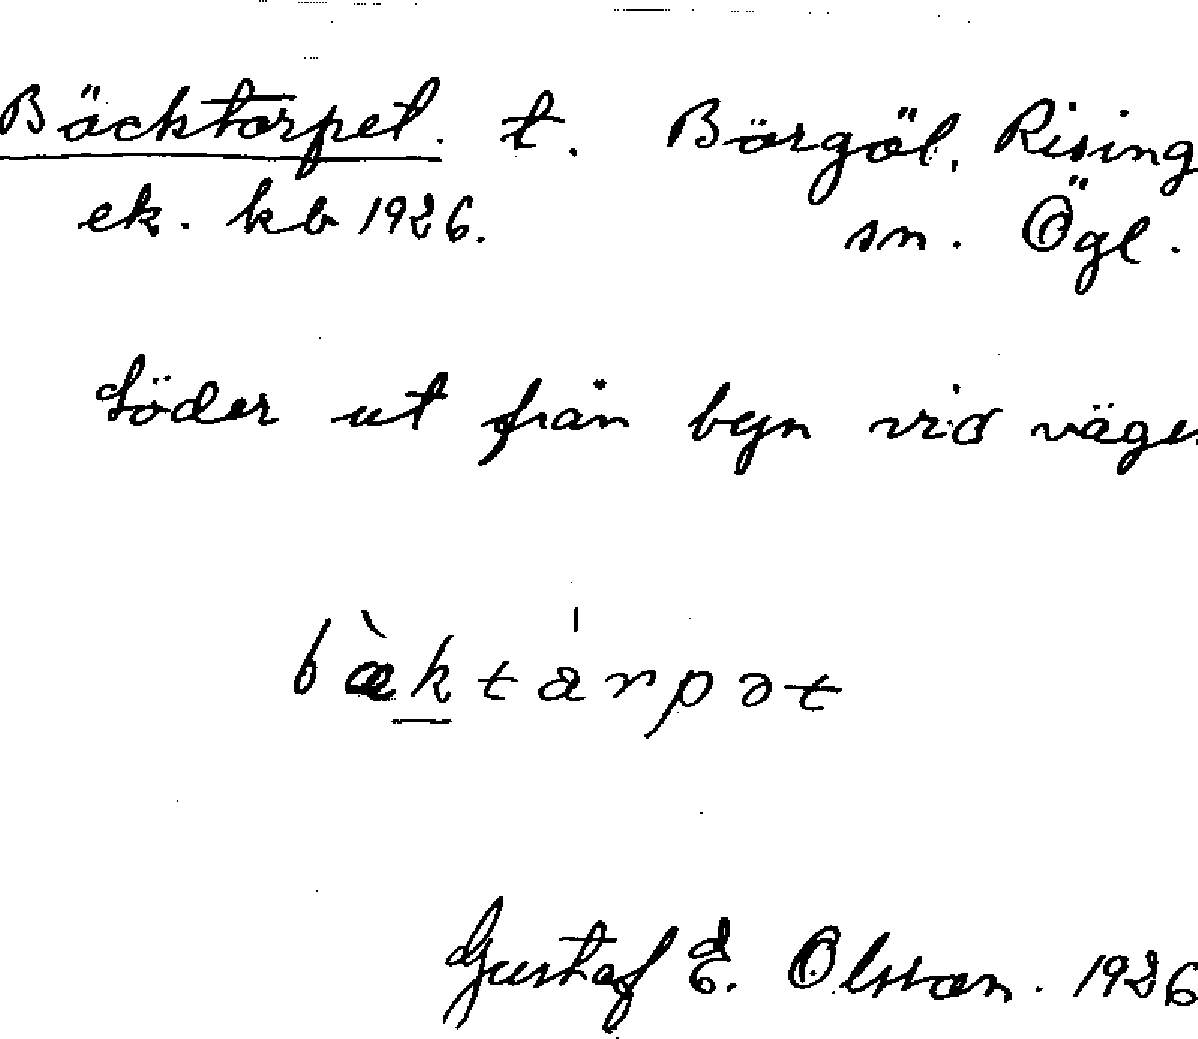 Bäcktorpet. t. Börgöl. Rising
ek. kb 1926. sn. Ögl.
Söder ut från byn vid vägen
bæ̀ktårpət
Gustaf E. Olsson. 1926